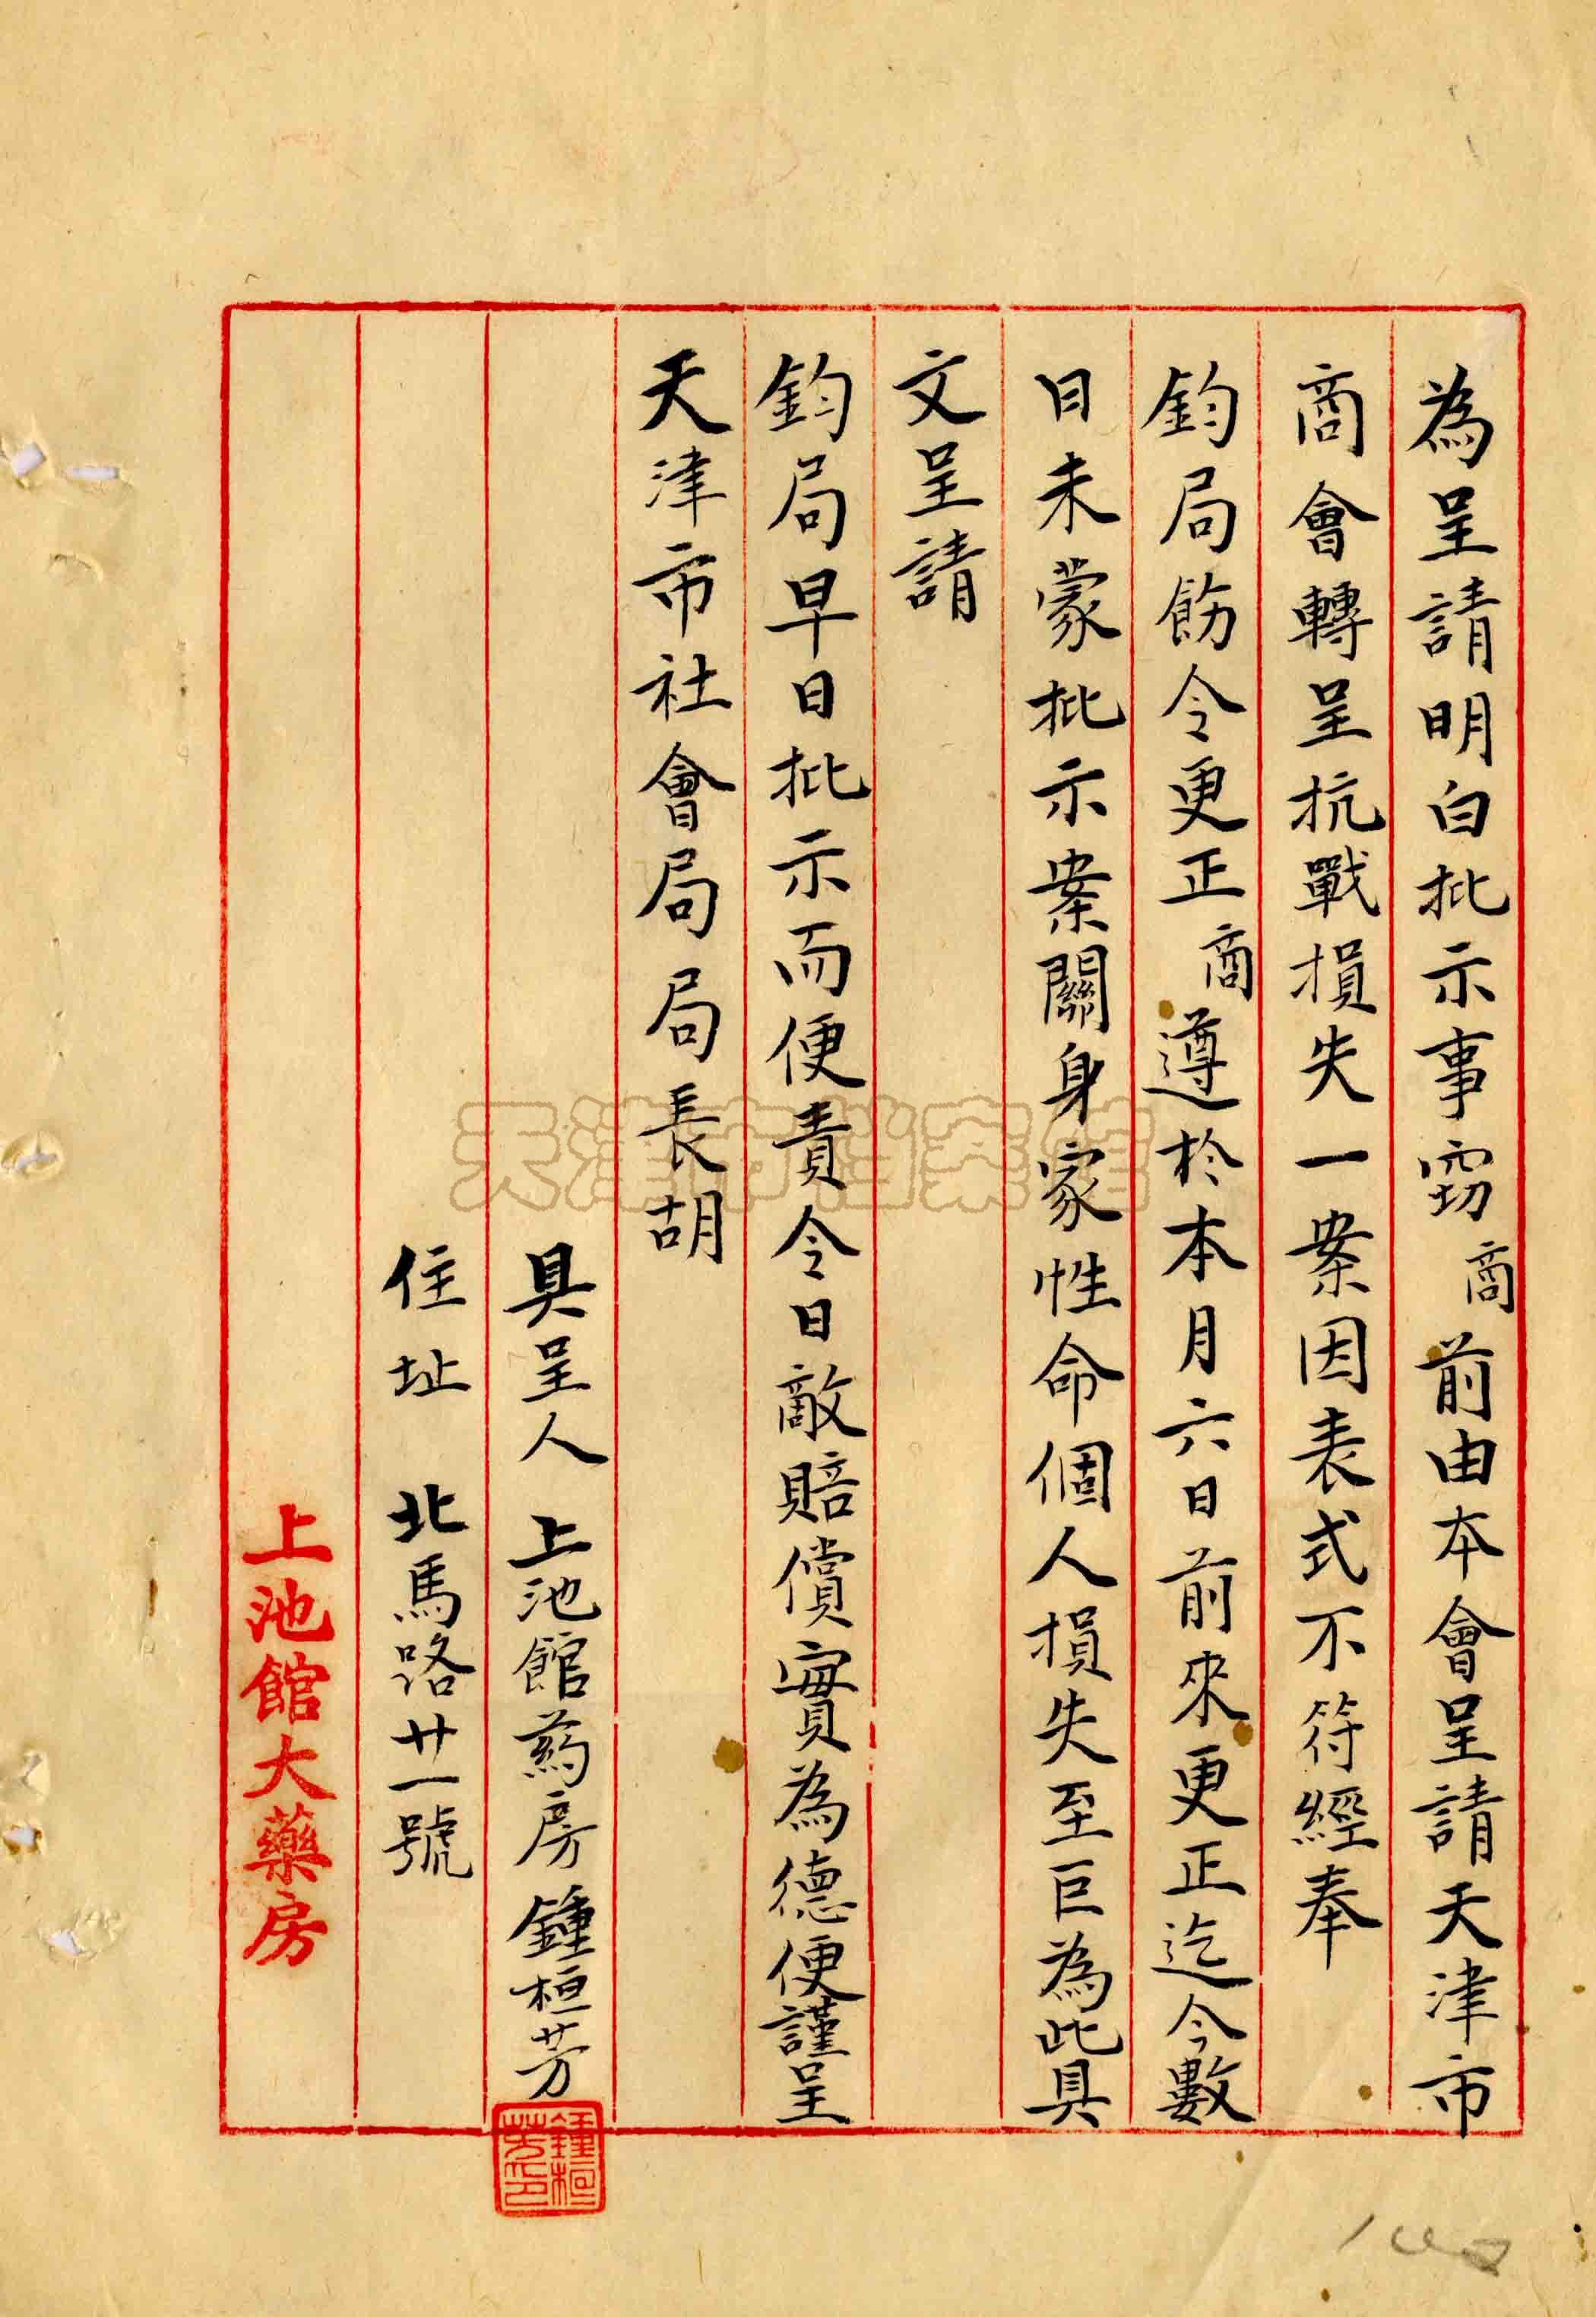 為呈請明白批示事窃商前由本會呈請天津市
商會轉呈抗戰損失一案因表式不符經奉
鈞局飭令更正商遵於本月六日前來更正迄今數
日未蒙批示案關身家性命個人損失至巨為此具
文呈請
鈞局早日批示而便責令日敵賠償實為德便謹呈
天津市社會局局長胡
具呈人 上池館药房鍾桓芳
住址 北馬路廿一號
上池館大藥房
鍾桓芳印
天津市档案馆